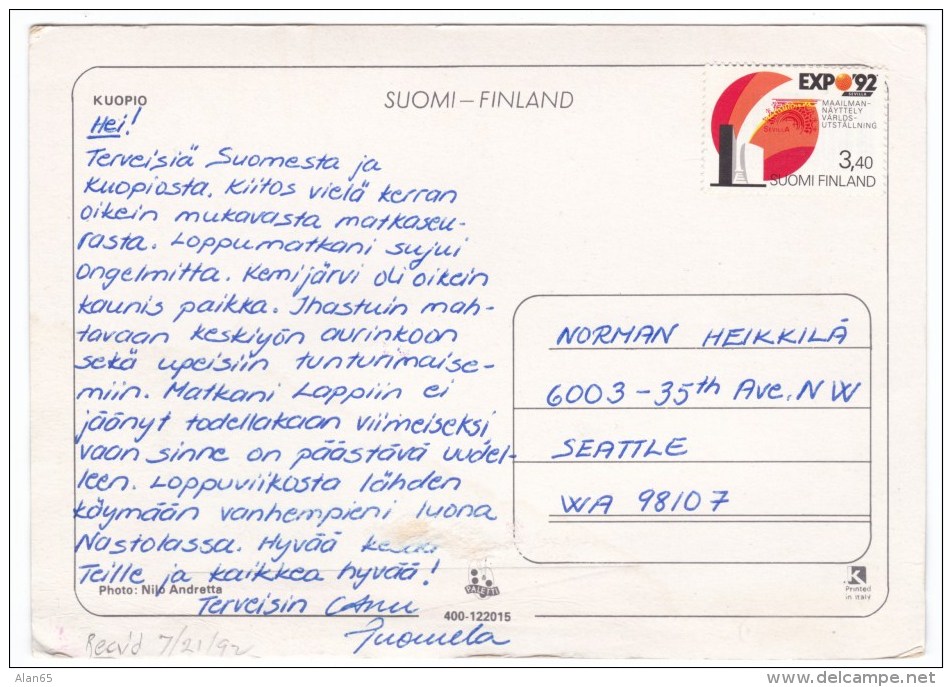 KUOPIO
SUOMI – FINLAND
EXPO '92
SEVILLA
MAAILMAN-
NÄYTTELY
VÄRLDS-
UTSTÄLLNING
SEVILLA
3,40
SUOMI FINLAND
Hei!
Terveisiä Suomesta ja
Kuopiosta. Kiitos vielä kerran
oikein mukavasta matkaseu-
rasta. Loppumatkani sujui
ongelmitta. Kemijärvi oli oikein
kaunis paikka. Ihastuin mah-
tavaan keskiyön aurinkoon
sekä upeisiin tunturimaise-
miin. Matkani Lappiin ei
jäänyt todellakaan viimeiseksi
vaan sinne on päästävä uudel-
leen. Loppuviikosta lähden
käymään vanhempieni luona
Nastolassa. Hyvää
Teille ja kaikkea hyvää!
Terveisin
Tuomela
NORMAN HEIKKILÄ
6003 – 35th Ave. NW
SEATTLE
WA 98107
Photo: Nilo Andretta
PALETTI
400-122015
K
Printed
in Italy
Recv'd 7/21/92
Alan65
delcampe.net